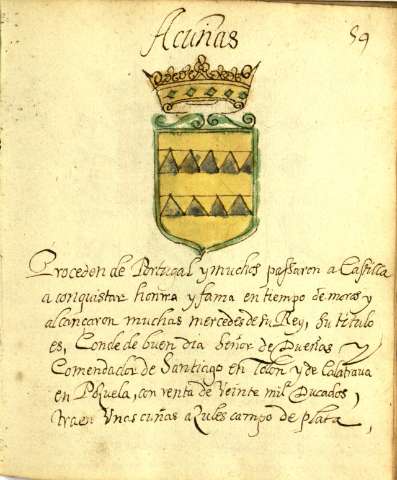 Acuñas
59
Proceden de Portugal y muchos passaron a Castilla
a conquistar honrra y fama en tiempo de moros y
alcançaron muchas mercedes de su Rey, su titulo
es, Conde de buen dia Señor de Dueñas y
Comendador de Santiago en y de Calatrava
en Pozuela, con renta de Veinte mil Ducados,
traen Unas cuñas azules campo de plata,